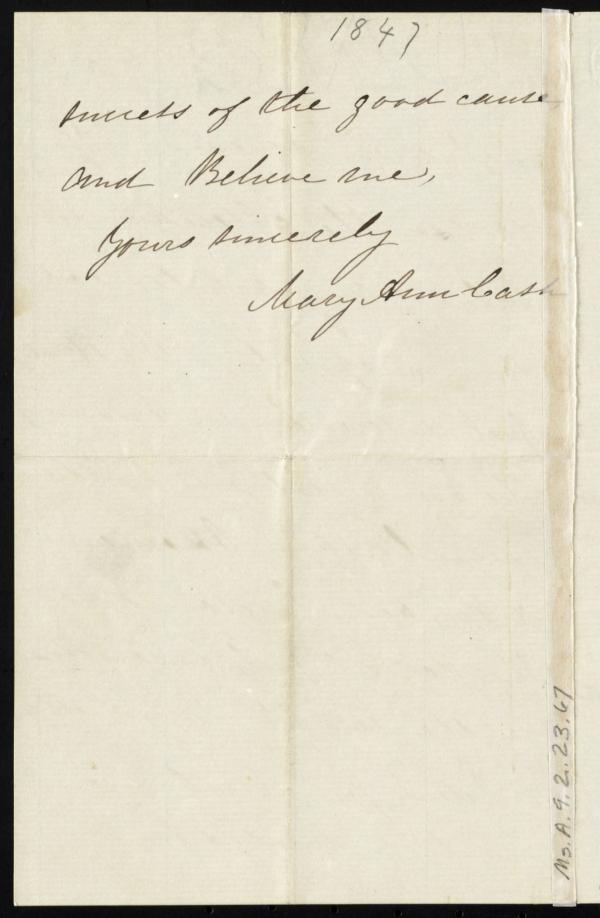 1847
success of the good cause
and Believe me,
Yours sincerely
Mary Ann Cash
Ms. A. 9. 2. 23. 67